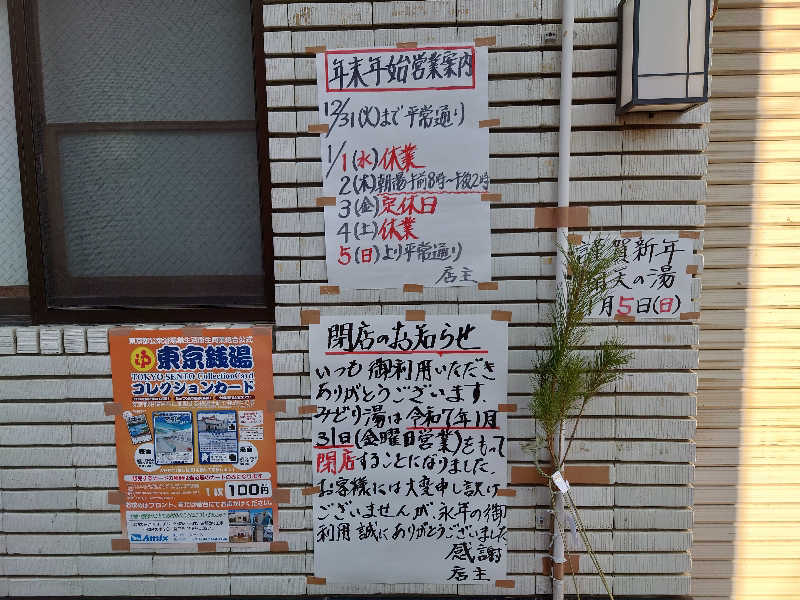 年末年始営業案内
12/31(火)まで平常通り
1/1(水)休業
2(木)朝湯午前8時〜午後2時
3(金)定休日
4(土)休業
5(日)より平常通り
店主
謹賀新年
天の湯
月5日(日)
閉店のお知らせ
いつも御利用いただき
ありがとうございます。
みどり湯は令和7年1月
31日(金曜日営業)をもって
閉店することになりました。
お客様には大変申し訳け
ございませんが、永年の御
利用誠にありがとうございました
感謝
店主
ゆ東京銭湯
TOKYO SENTO Collection Card
コレクションカード
1枚100円
Amix